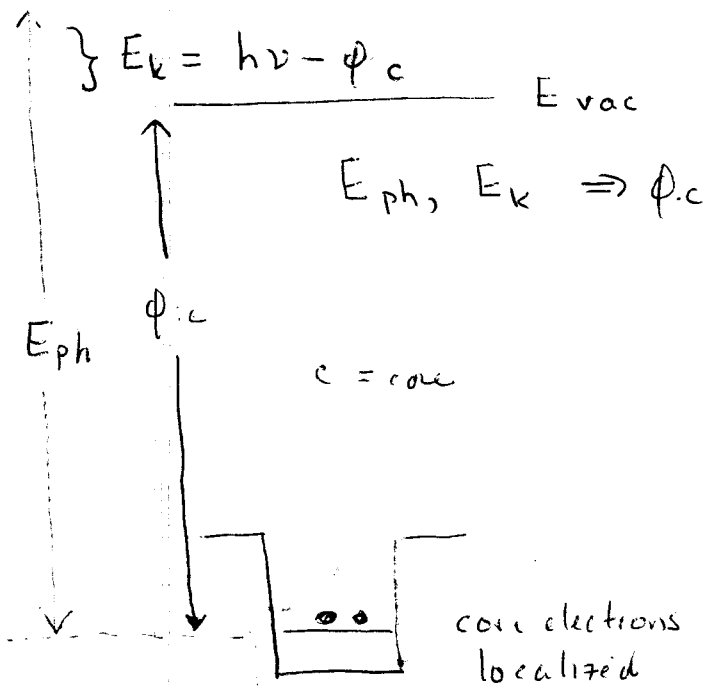 } E_k = hν - φ_c
E vac
E_ph, E_k ⇒ φ_c
φ_c
E_ph
c = core
core electrons
localized